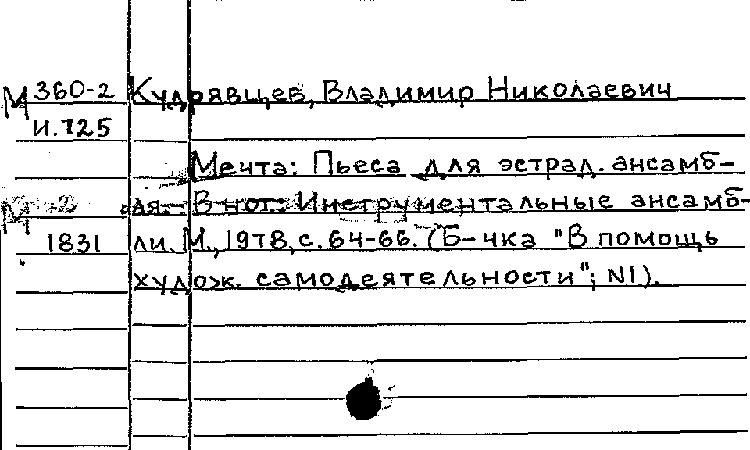 М 360-2 Кудрявцев, Владимир Николаевич
И.725
Мечта: Пьеса для эстрад. ансамб-
М -2 ля.- В нот.: Инструментальные ансамб-
1831 ли. М., 1978, с. 64-66. (Б-чка "В помощь
худож. самодеятельности"; N1).